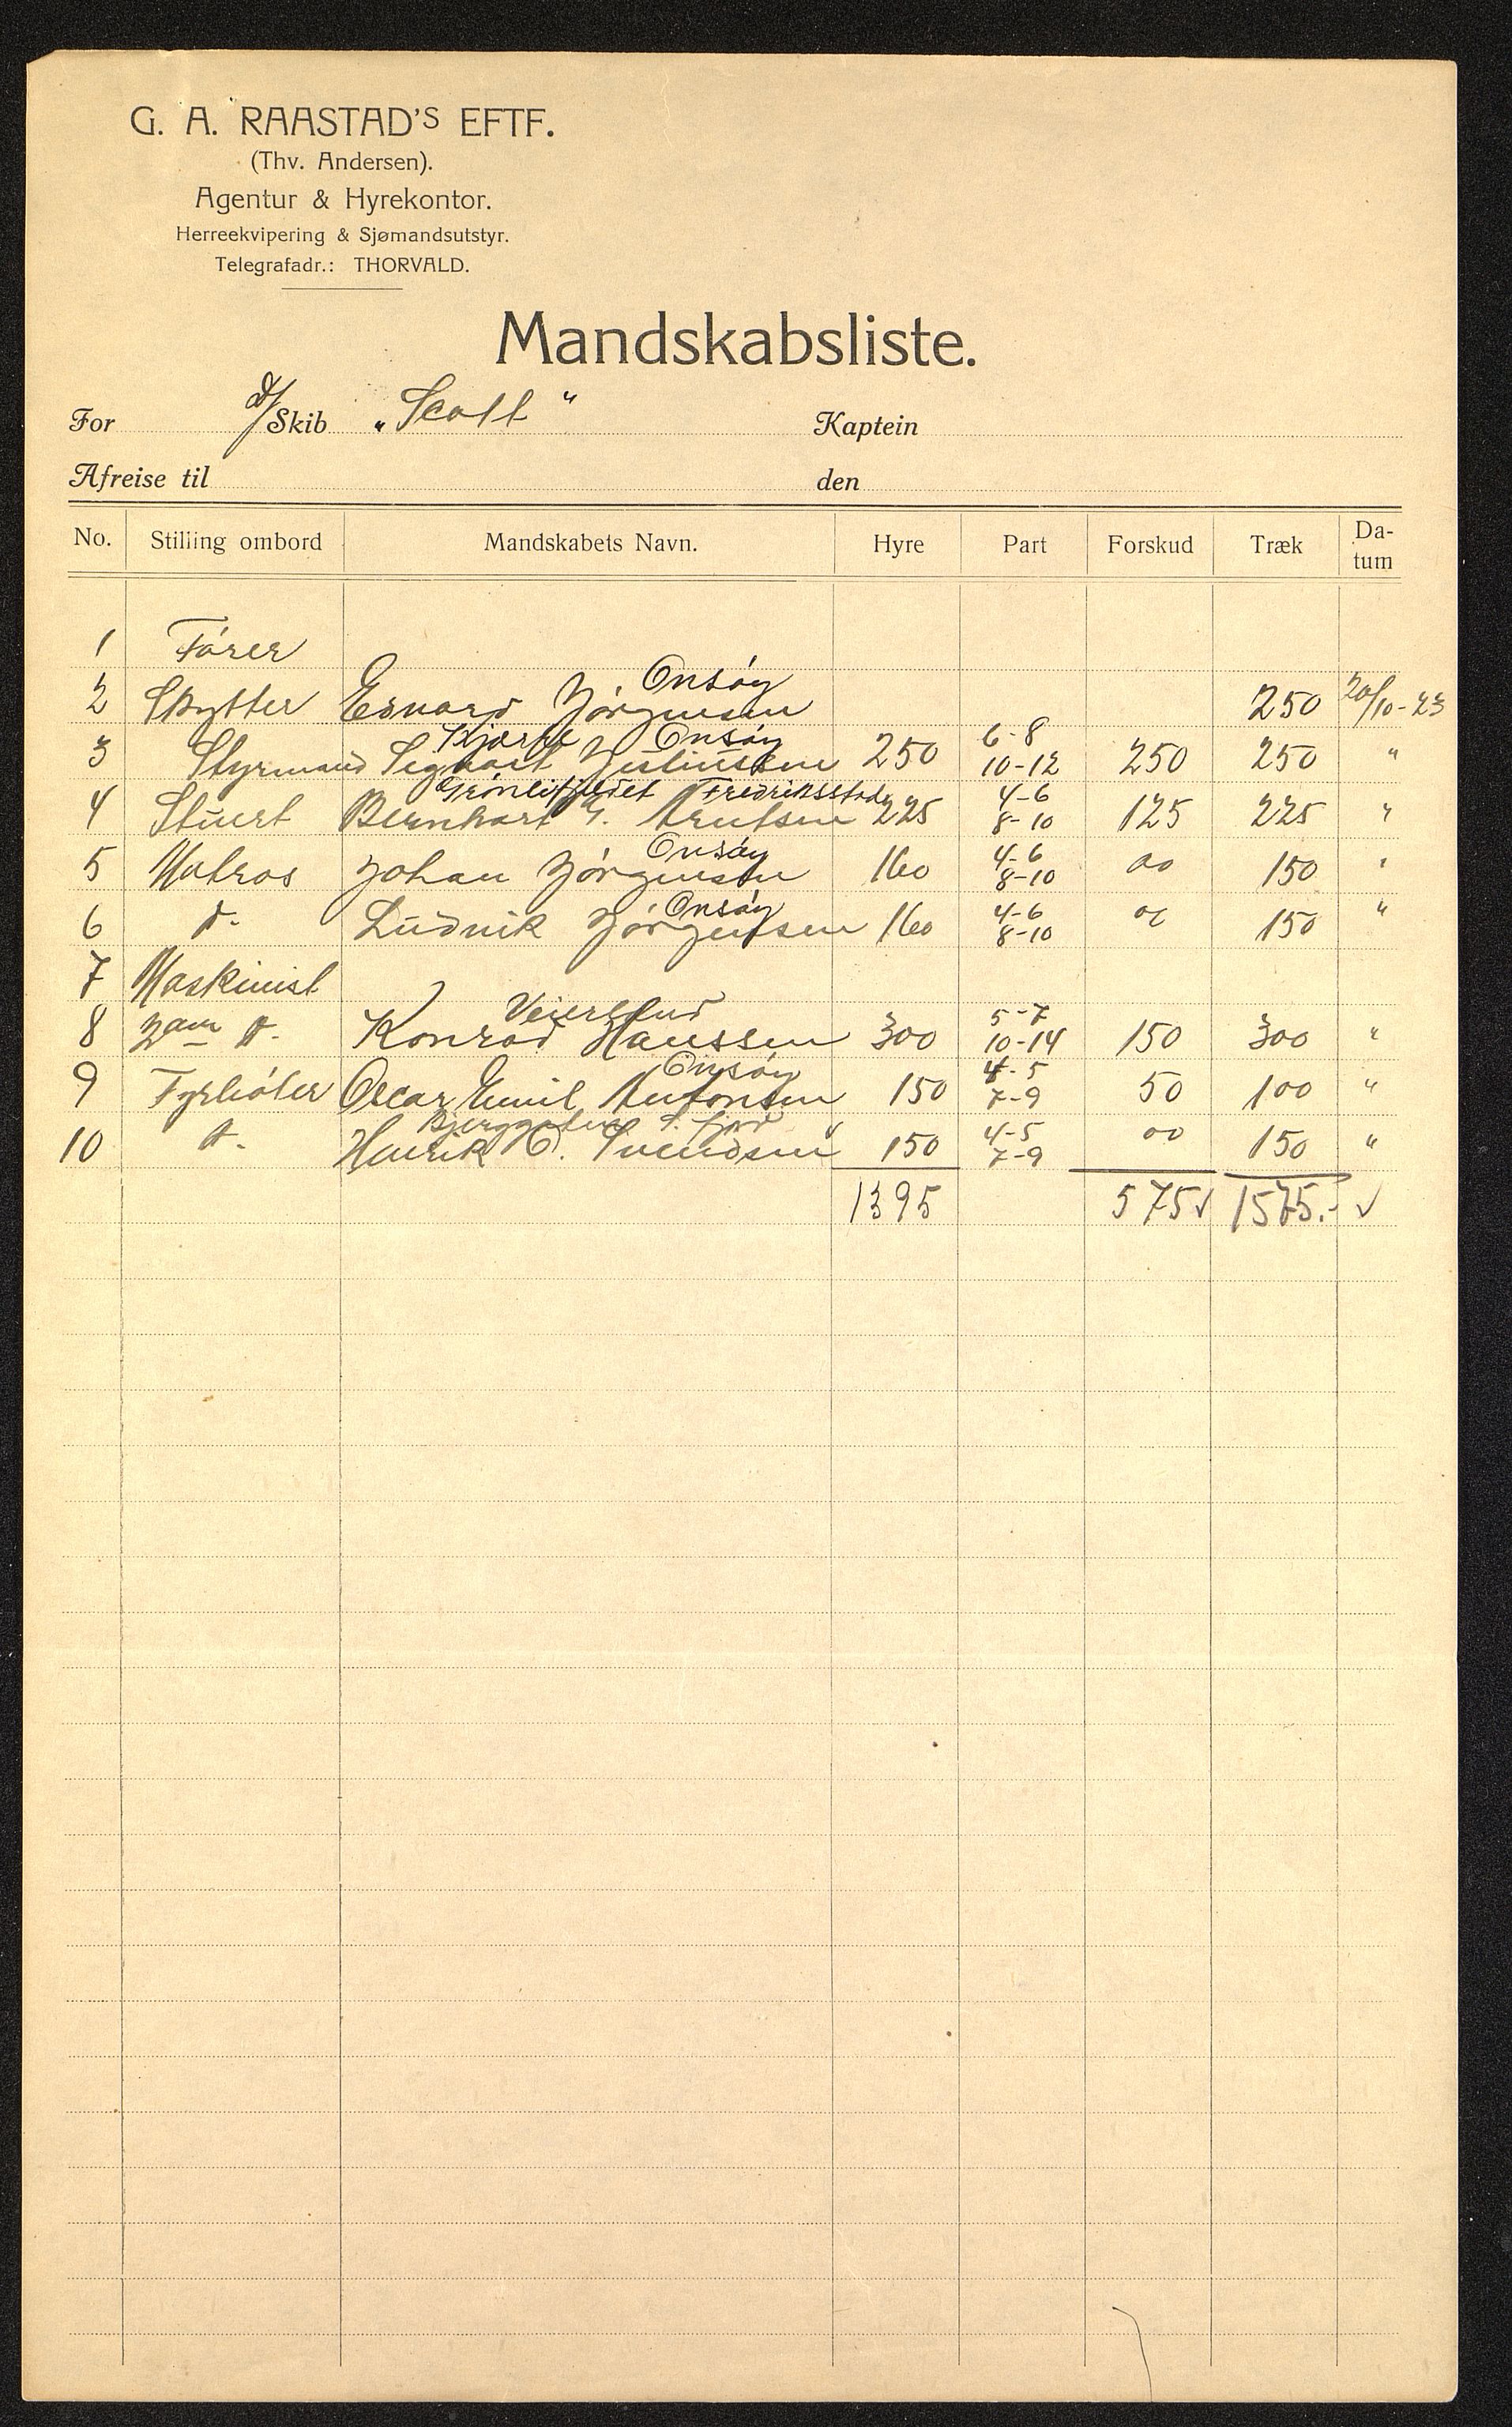 G. A. RAASTAD'S EFTF.
(Thv. Andersen).
Agentur & Hyrekontor.
Herreekvipering & Sjømandsutstyr.
Telegrafadr.: THORVALD.
Mandskabsliste.
For d/Skib „Scott" Kaptein
Afreise til den
No. Stilling ombord Mandskabets Navn. Hyre Part Forskud Træk Da-tum
1 Fører
Onsøy
2 Skytter Edvard Jørgensen 250 20/10-23
Kjærre Onsøy 6-8
3 Styrmand Sigvart Justinsen 250 10-12 250 250 "
Grønlifjeldet Fredriksstad 4-6
4 Stuert Bernhart G. Arntsen 225 8-10 125 225 "
Onsøy 4-6
5 Matros Johan Jørgensen 160 8-10 00 150 "
Onsøy 4-6
6 d. Ludvik Jørgensen 160 8-10 00 150 "
7 Maskinist
Veierslund 5-7
8 2den d. Konrad Hanssen 300 10-14 150 300 "
Onsøy 4-5
9 Fyrbøter Oscar Emil Antonsen 150 7-9 50 100 "
Bjerggaten S. fjord 4-5
10 d. Henrik O. Svendsen 150 7-9 00 150 "
1395 575 1575.-